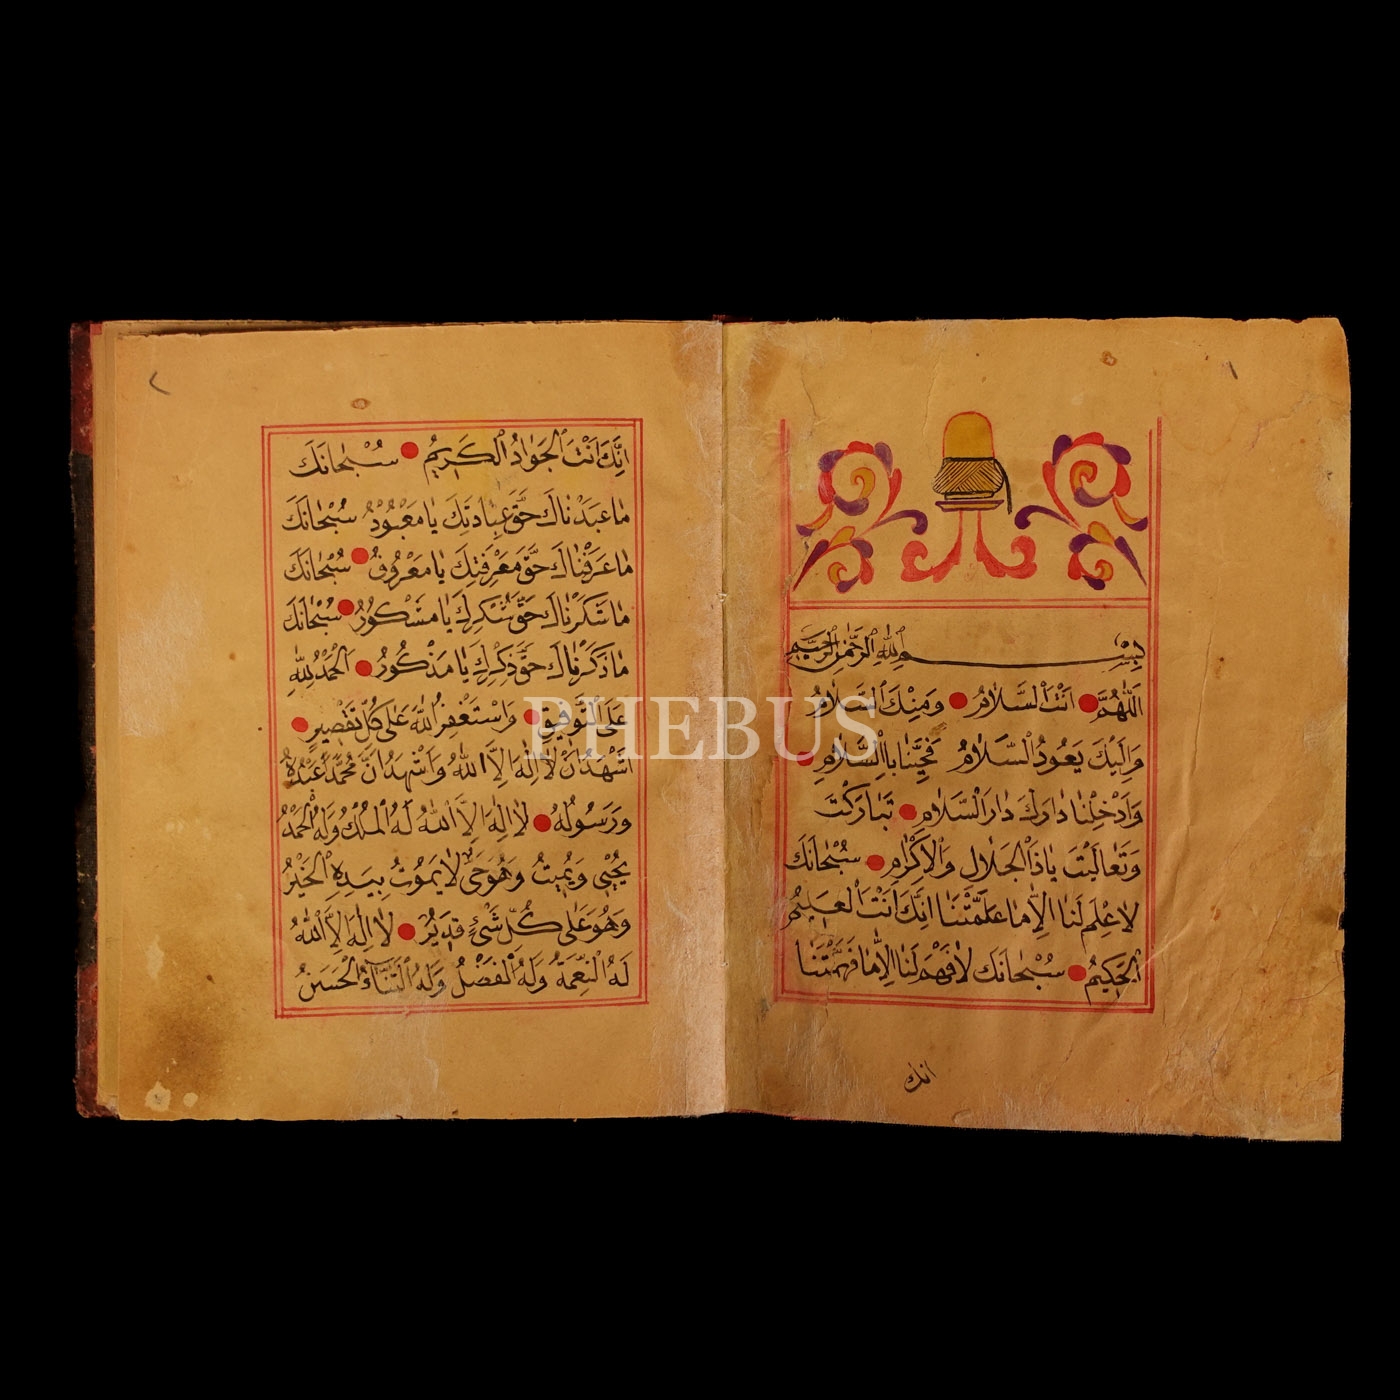 بِسْمِ اللهِ الرَّحْمٰنِ الرَّحِيمِ
اَللّٰهُمَّ اَنْتَ السَّلَامُ وَمِنْكَ السَّلَامُ
وَاِلَيْكَ يَعُودُ السَّلَامُ فَحَيِّنَا بِالسَّلَامِ
وَاَدْخِلْنَا دَارَكَ دَارَ السَّلَامِ تَبَارَكْتَ
وَتَعَالَيْتَ يَاذَا الْجَلَالِ وَالْاِكْرَامِ سُبْحَانَكَ
لَا عِلْمَ لَنَا اِلَّا مَا عَلَّمْتَنَا اِنَّكَ اَنْتَ الْعَلِيمُ
الْحَكِيمُ سُبْحَانَكَ لَا فَهْمَ لَنَا اِلَّا مَا فَهَّمْتَنَا
انك
٢
اِنَّكَ اَنْتَ الْجَوَادُ الْكَرِيمُ سُبْحَانَكَ
مَا عَبَدْنَاكَ حَقَّ عِبَادَتِكَ يَا مَعْبُودُ سُبْحَانَكَ
مَا عَرَفْنَاكَ حَقَّ مَعْرِفَتِكَ يَا مَعْرُوفُ سُبْحَانَكَ
مَا شَكَرْنَاكَ حَقَّ شُكْرِكَ يَا مَشْكُورُ سُبْحَانَكَ
مَا ذَكَرْنَاكَ حَقَّ ذِكْرِكَ يَا مَذْكُورُ اَلْحَمْدُ لِلّٰهِ
عَلَى التَّوْفِيقِ وَاَسْتَغْفِرُ اللهَ عَلَى كُلِّ تَقْصِيرٍ
اَشْهَدُ اَنْ لَا اِلٰهَ اِلَّا اللهُ وَاَشْهَدُ اَنَّ مُحَمَّدًا عَبْدُهُ
وَرَسُولُهُ لَا اِلٰهَ اِلَّا اللهُ لَهُ الْمُلْكُ وَلَهُ الْحَمْدُ
يُحْيِي وَيُمِيتُ وَهُوَ حَيٌّ لَا يَمُوتُ بِيَدِهِ الْخَيْرُ
وَهُوَ عَلَى كُلِّ شَيْءٍ قَدِيرٌ لَا اِلٰهَ اِلَّا اللهُ
لَهُ النِّعْمَةُ وَلَهُ الْفَضْلُ وَلَهُ الثَّنَاءُ الْحَسَنُ
PHEBUS